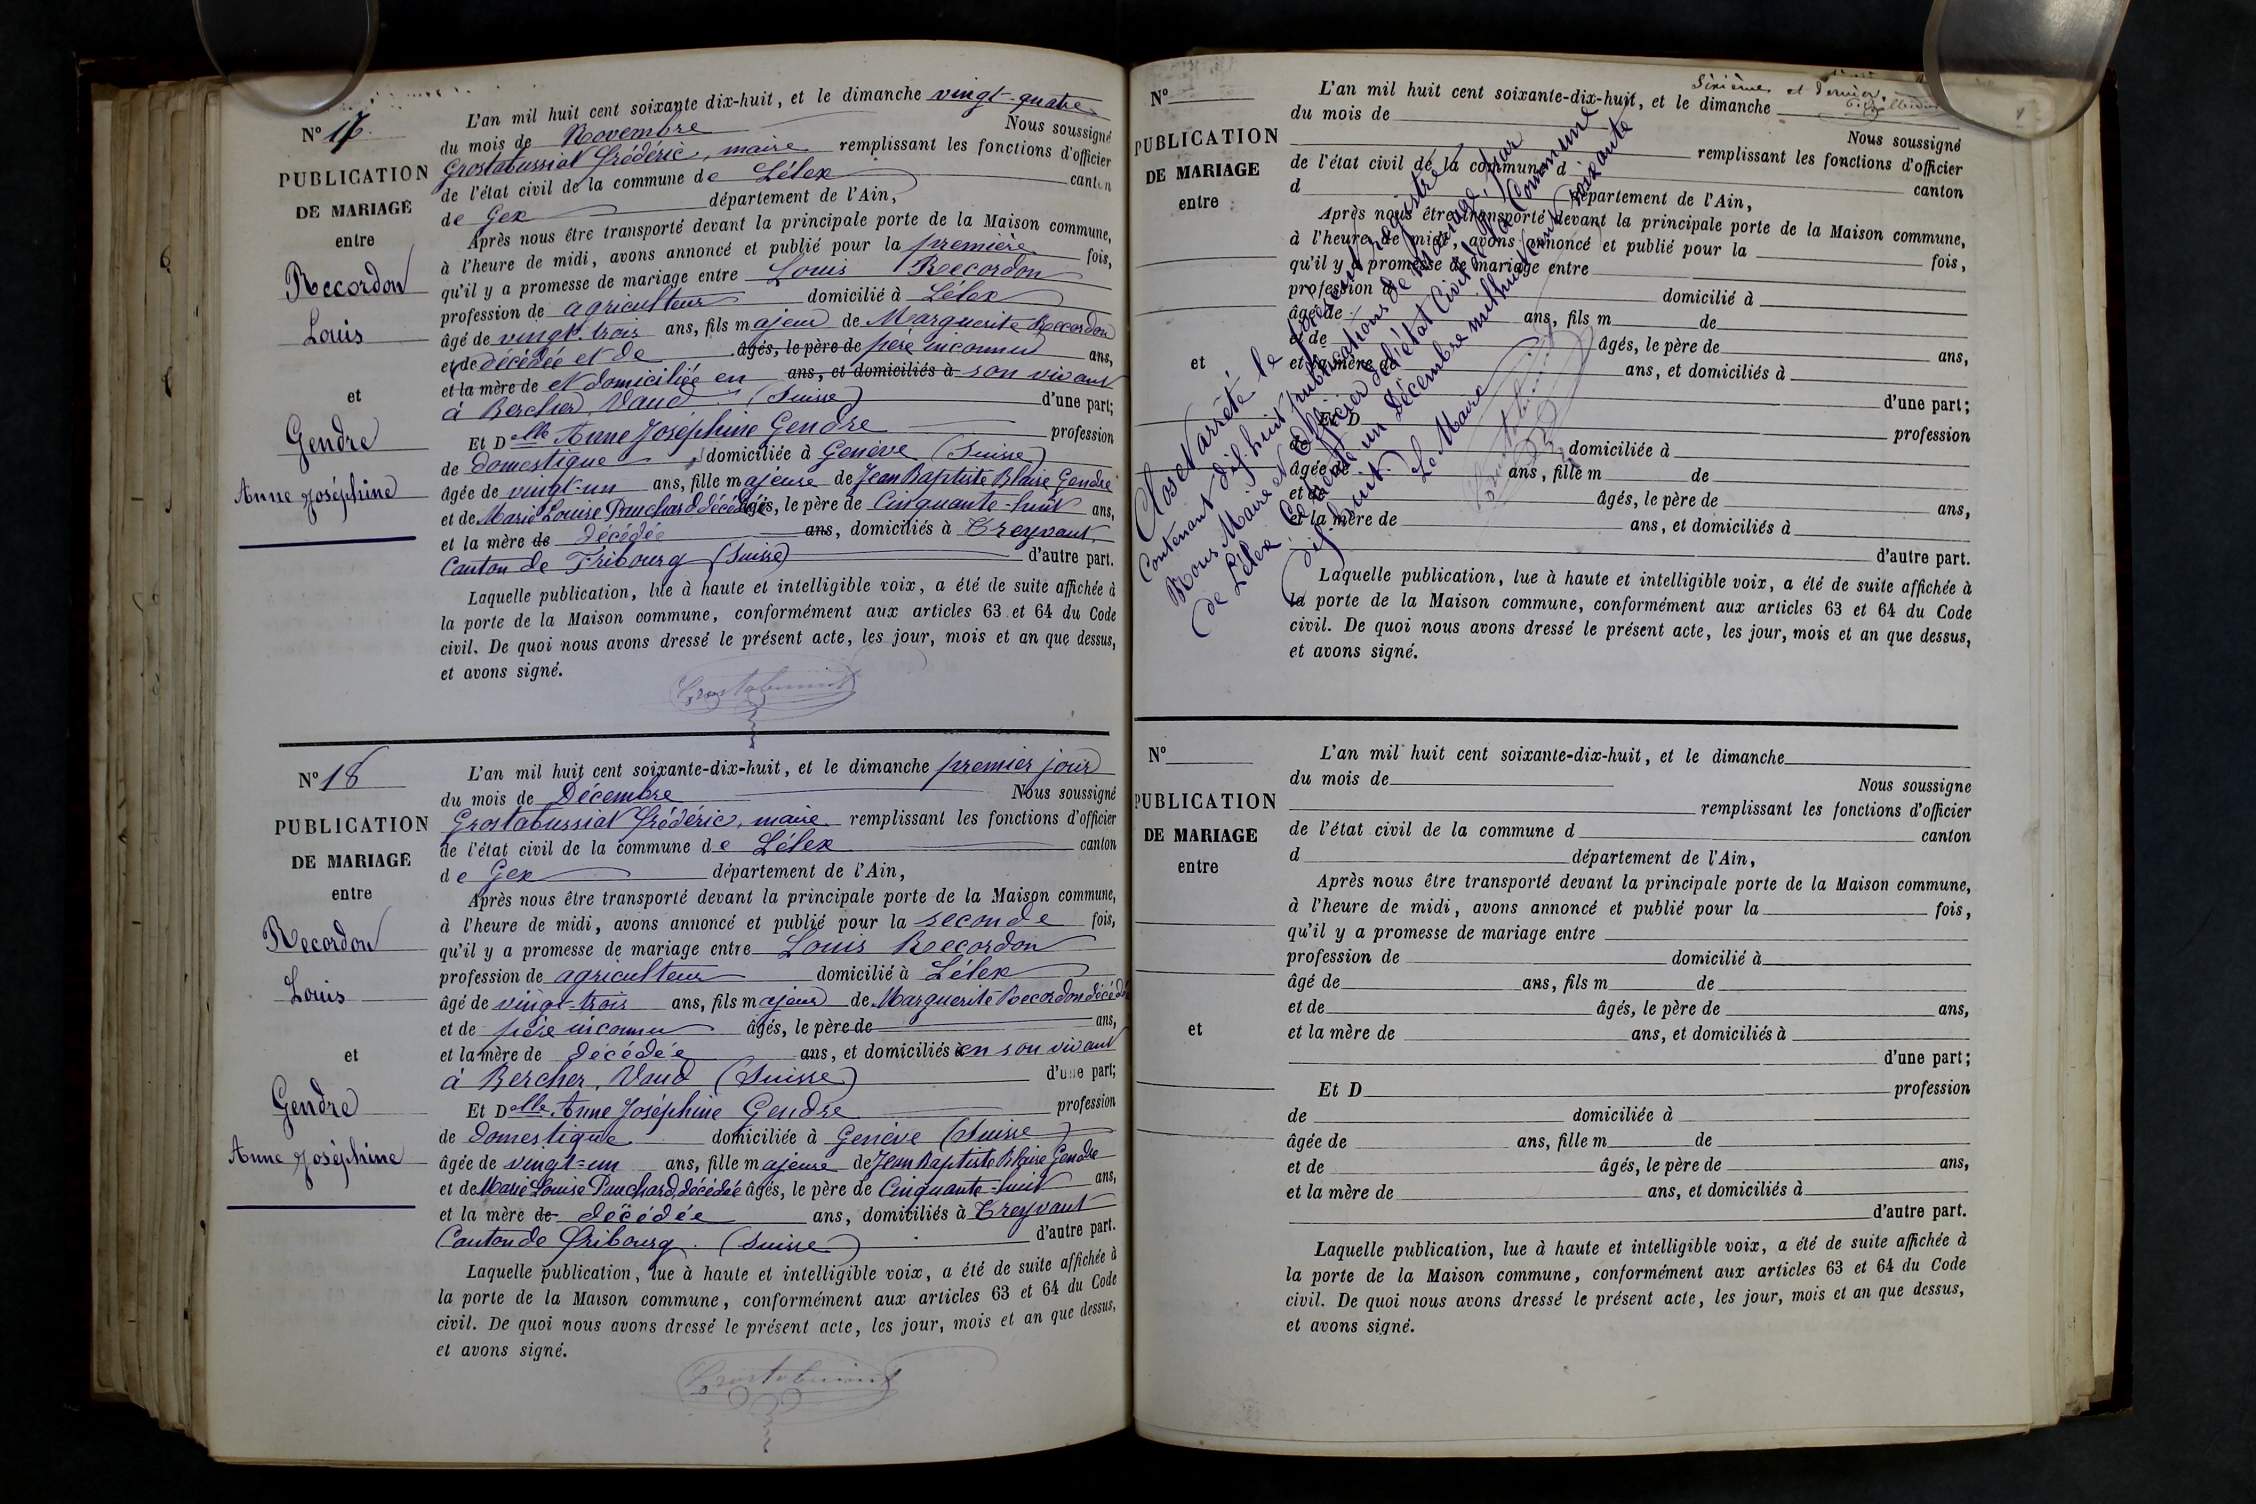 N° 17
PUBLICATION
DE MARIAGE
entre
Recordon
Louis
et
Gendre
Anne Joséphine
L'an mil huit cent soixante dix-huit, et le dimanche vingt-quatre
du mois de Novembre Nous soussigné
Grostabussiat Frédéric, maire remplissant les fonctions d'officier
de l'état civil de la commune de Lélex canton
de Gex département de l'Ain,
Après nous être transporté devant la principale porte de la Maison commune,
à l'heure de midi, avons annoncé et publié pour la première fois,
qu'il y a promesse de mariage entre Louis Recordon
profession de agriculteur domicilié à Lélex
âgé de vingt-trois ans, fils majeur de Marguerite Recordon
et de décédée et de âgés, le père de père inconnu ans,
et la mère de et domiciliée en ans, et domiciliés à son vivant
à Bercher, Vaud (Suisse) d'une part;
Et Delle Anne Joséphine Gendre profession
de domestique domiciliée à Genève (Suisse)
âgée de vingt-un ans, fille majeure de Jean Baptiste Blaise Gendre
et de Marie Louise Pauchard décédée âgés, le père de Cinquante-huit ans,
et la mère de décédée ans, domiciliés à Treyvaut
Canton de Fribourg (Suisse) d'autre part.
Laquelle publication, lue à haute et intelligible voix, a été de suite affichée à
la porte de la Maison commune, conformément aux articles 63 et 64 du Code
civil. De quoi nous avons dressé le présent acte, les jour, mois et an que dessus,
et avons signé.
Grostabussiat
N° 18
PUBLICATION
DE MARIAGE
entre
Recordon
Louis
et
Gendre
Anne Joséphine
L'an mil huit cent soixante-dix-huit, et le dimanche premier jour
du mois de Décembre Nous soussigné
Grostabussiat Frédéric, maire remplissant les fonctions d'officier
de l'état civil de la commune de Lélex canton
de Gex département de l'Ain,
Après nous être transporté devant la principale porte de la Maison commune,
à l'heure de midi, avons annoncé et publié pour la seconde fois,
qu'il y a promesse de mariage entre Louis Recordon
profession de agriculteur domicilié à Lélex
âgé de vingt-trois ans, fils majeur de Marguerite Recordon décédée
et de père inconnu âgés, le père de ans,
et la mère de décédée ans, et domiciliés à en son vivant
à Bercher, Vaud (Suisse) d'une part;
Et Delle Anne Joséphine Gendre profession
de domestique domiciliée à Genève (Suisse)
âgée de vingt-un ans, fille majeure de Jean Baptiste Blaise Gendre
et de Marie Louise Pauchard, décédée âgés, le père de Cinquante-huit ans,
et la mère de décédée ans, domiciliés à Treyvaut
Canton de Fribourg. (Suisse) d'autre part.
Laquelle publication, lue à haute et intelligible voix, a été de suite affichée à
la porte de la Maison commune, conformément aux articles 63 et 64 du Code
civil. De quoi nous avons dressé le présent acte, les jour, mois et an que dessus,
et avons signé.
Grostabussiat
Sixième et dernier.
N°
PUBLICATION
DE MARIAGE
entre
et
L'an mil huit cent soixante-dix-huit, et le dimanche
du mois de Nous soussigné
remplissant les fonctions d'officier
de l'état civil de la commune d canton
d département de l'Ain,
Après nous être transporté devant la principale porte de la Maison commune,
à l'heure de midi, avons annoncé et publié pour la fois,
qu'il y a promesse de mariage entre
profession de domicilié à
âgé de ans, fils m de
et de âgés, le père de ans,
et la mère de ans, et domiciliés à
d'une part;
Et D profession
de domiciliée à
âgée de ans, fille m de
et de âgés, le père de ans,
et la mère de ans, et domiciliés à
d'autre part.
Laquelle publication, lue à haute et intelligible voix, a été de suite affichée à
la porte de la Maison commune, conformément aux articles 63 et 64 du Code
civil. De quoi nous avons dressé le présent acte, les jour, mois et an que dessus,
et avons signé.
Clos et arrêté le présent registre
Contenant dix huit publications de Mariage, par
Nous Maire et Officier de l'état Civil de la Commune
de Lélex. Ce trente un Décembre mil huit cent soixante
dix huit. Le Maire
N°
PUBLICATION
DE MARIAGE
entre
et
L'an mil huit cent soixante-dix-huit, et le dimanche
du mois de Nous soussigne
remplissant les fonctions d'officier
de l'état civil de la commune d canton
d département de l'Ain,
Après nous être transporté devant la principale porte de la Maison commune,
à l'heure de midi, avons annoncé et publié pour la fois,
qu'il y a promesse de mariage entre
profession de domicilié à
âgé de ans, fils m de
et de âgés, le père de ans,
et la mère de ans, et domiciliés à
d'une part;
Et D profession
de domiciliée à
âgée de ans, fille m de
et de âgés, le père de ans,
et la mère de ans, et domiciliés à
d'autre part.
Laquelle publication, lue à haute et intelligible voix, a été de suite affichée à
la porte de la Maison commune, conformément aux articles 63 et 64 du Code
civil. De quoi nous avons dressé le présent acte, les jour, mois et an que dessus,
et avons signé.